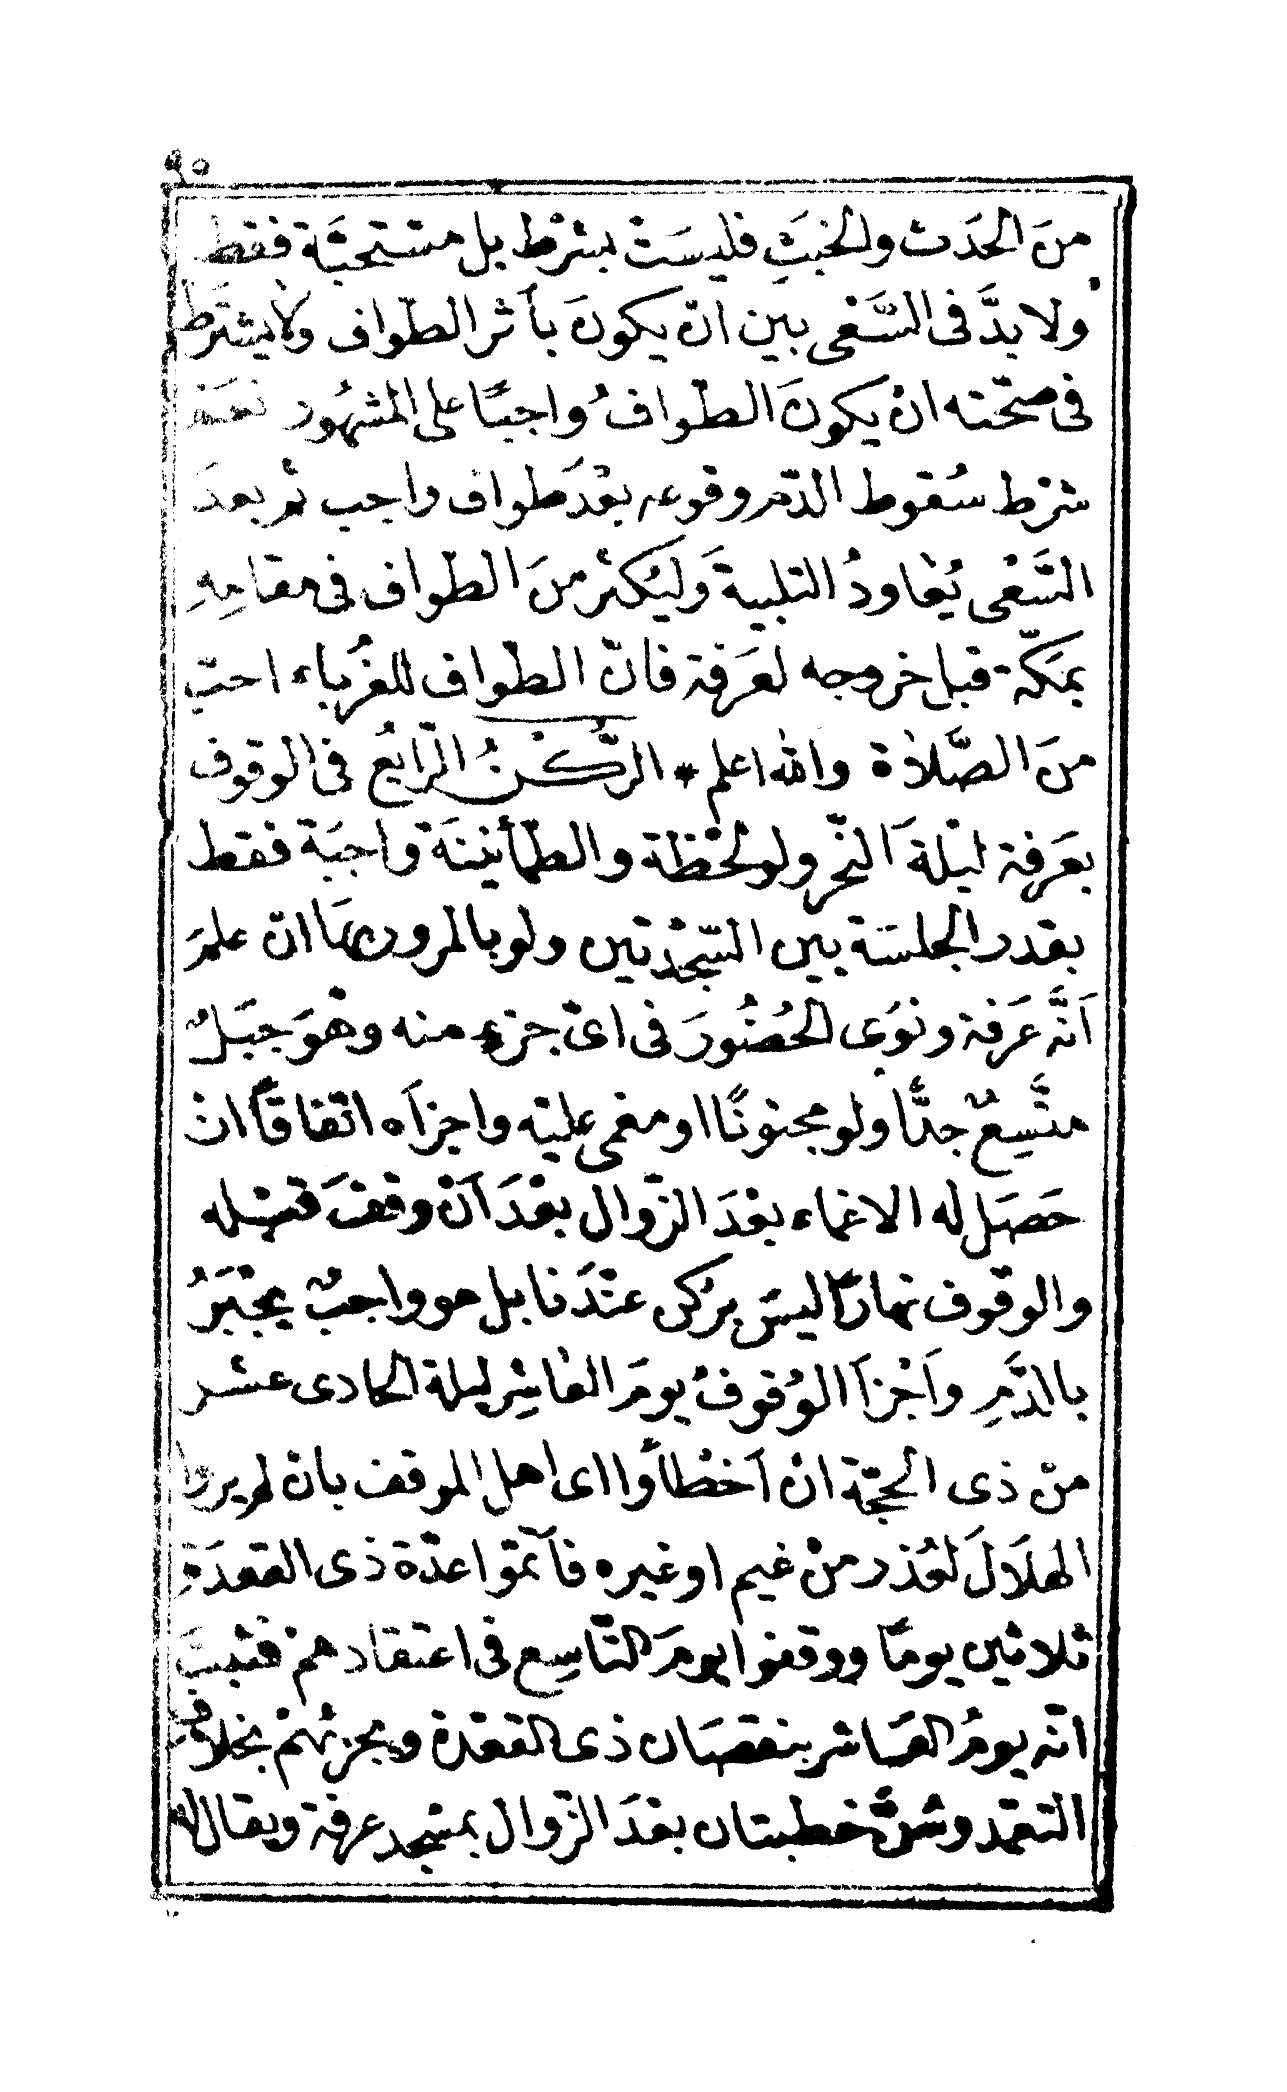 ٩٥
منَ الحَدَث والخبَثِ فليسَتْ بشرْط بل مستحبَّة فقط
ولا بدَّ فى السَّعْى بين انْ يكونَ بأثر الطواف ولا يشترط
فى صحّته انْ يكونَ الطّوافُ واجبًا على المشهُور نعَمْ
شرْط سُقوط الدّم وقوعه بعْدَ طواف واجب ثم بعدَ
السَّعْى يُعَاودُ التلبيةَ وَليُكثرْ منَ الطواف فى مقامِهِ
بمكّة قبل خروجه لعَرَفة فانّ الطّواف للغُرَباء احبّ
منَ الصَّلاة والله اعلم * الرُّكْنُ الرّابعُ فى الوقوف
بعَرَفة ليْلةَ النّحر ولو لحْظة والطّمأنينَة واجبَة فقط
بقدر الجلسَة بين السّجْدتين ولو بالمرور بهَا انْ علمَ
اَنَّه عَرَفة ونوَى الحُضُورَ فى اىّ جزءٍ منه وهْوَ جبَلٌ
متَّسِعٌ جدًّا ولو مجنونًا او مغمى عليْه واجزأه اتّفاقًا انْ
حَصَل له الاغماء بعْدَ الزّوال بعْدَ اَنْ وقفَ قبْله
والوقوف نهارًا ليسَ برُكن عنْدَنا بل هو واجبٌ يجْبَرُ
بالدَّمِ واَجْزأ الوُقوفُ يومَ العَاشِر ليلة الحادى عشر
منْ ذى الحجّة انْ اَخْطأوا اى اهل الموقف بانْ لم يروا
الهلَالَ لعُذر منْ غيم او غيره فأتمّوا عدّة ذى القعدَةِ
ثلاثين يومًا ووقفوا يومَ التّاسِع فى اعتقادهمْ فثبتَ
انّه يومُ العَاشر بنقصَان ذى القعْدة ويجزئهمْ بخلافِ
التعمّد وسُنَّ خطبتان بعْدَ الزّوال بمسْجد عرفة ويقال له